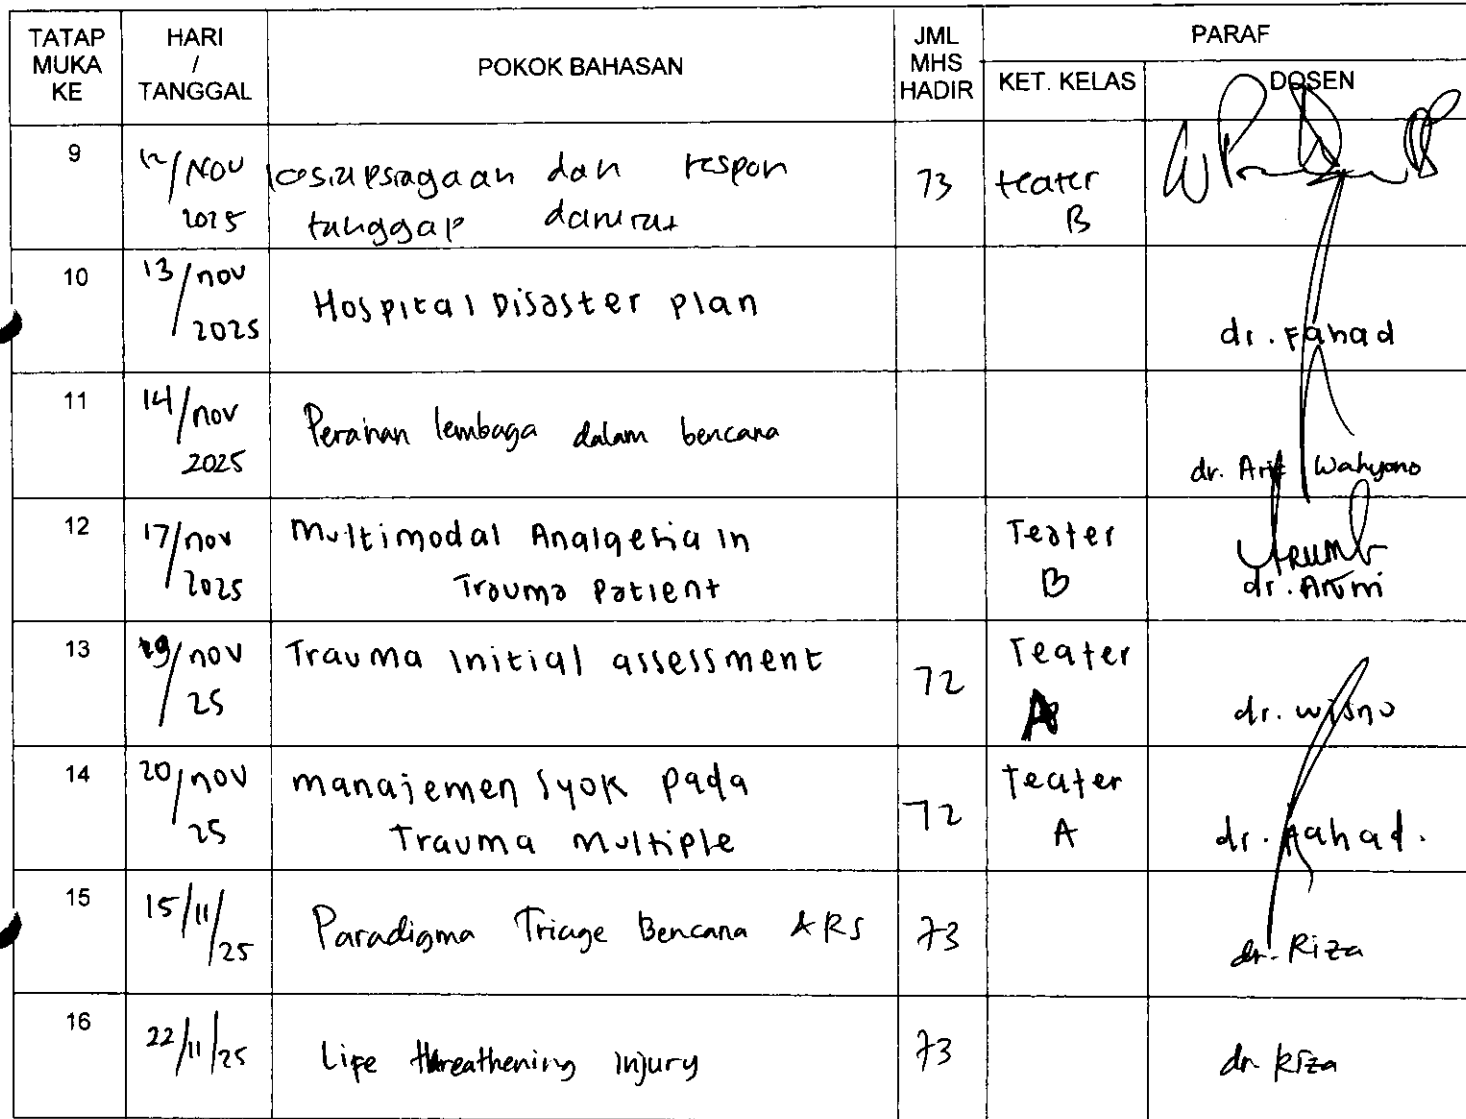 TATAP MUKA KE
HARI / TANGGAL
POKOK BAHASAN
JML MHS HADIR
PARAF
KET. KELAS
DOSEN
9
12/NOV 2025
kesiapsiagaan dan respon
tanggap darurat
73
teater B
10
13/nov 2025
Hospital Disaster plan
dr. Fahad
11
14/nov 2025
Peranan lembaga dalam bencana
dr. Arif Wahyono
12
17/nov 2025
Multimodal Analgesia in
Trauma Patient
Teater B
dr. Arumi
13
19/nov 25
Trauma initial assessment
72
Teater A
dr. wisnu
14
20/nov 25
manajemen syok pada
Trauma Multiple
72
Teater A
dr. Fahad.
15
15/11/25
Paradigma Triage Bencana & RS
73
dr. Riza
16
22/11/25
Life threathening injury
73
dr. Riza